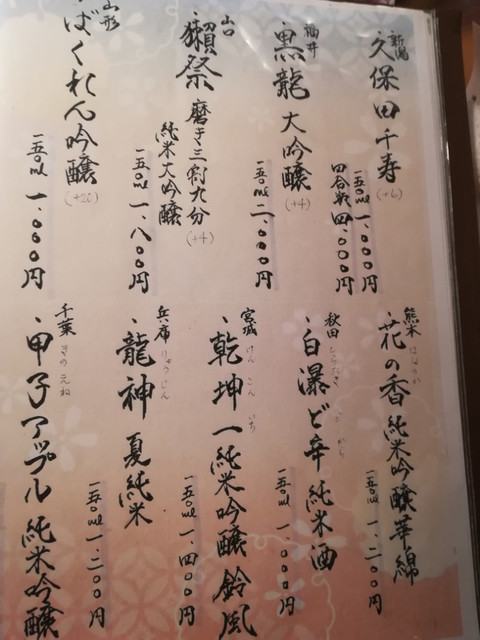 新潟
・久保田 千寿 (+6)
一五〇ml 一、〇〇〇円
四合瓶 四、〇〇〇円
福井
・黒龍 大吟醸 (+4)
一五〇ml 二、〇〇〇円
山口
・獺祭 磨き三割九分
純米大吟醸 (+4)
一五〇ml 一、八〇〇円
山形
・ばくれん 吟醸 (+20)
一五〇ml 一、〇〇〇円
熊本
・花の香 純米吟醸 華錦
はなのか
一五〇ml 一、二〇〇円
秋田
・白瀑 ど辛 純米酒
しらたき ど から
一五〇ml 一、〇〇〇円
宮城
・乾坤一 純米吟醸 鈴風
けん こん いち
一五〇ml 一、四〇〇円
兵庫
・龍神 夏純米
りゅうじん
一五〇ml 一、二〇〇円
千葉
・甲子アップル 純米吟醸
きのえね